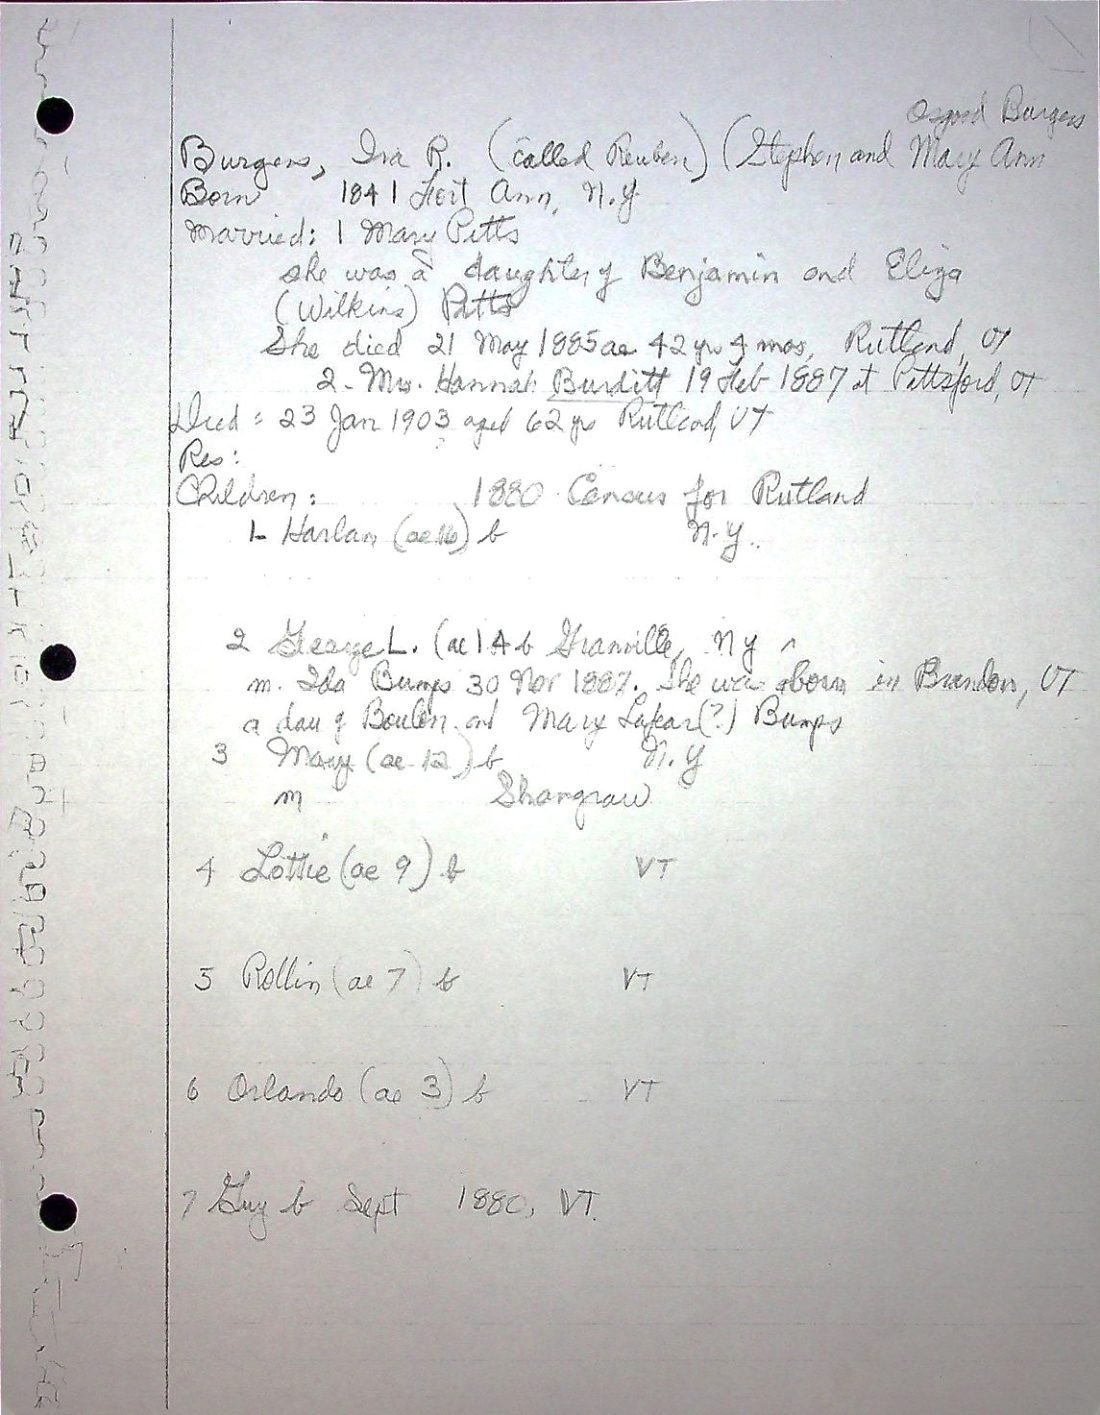 Osgood Burgess
Burgess, Ira R. (called Reuben) (Stephen and Mary Ann
Born 1841 Fort Ann, N.Y
Married: 1 Mary Pitts
she was a daughter of Benjamin and Eliza
(Wilkins) Pitts
She died 21 May 1885 ae 42 yrs 4 mos, Rutland, VT
2- Mrs. Hannah Burditt 19 Feb 1887 at Pittsford, VT
Died: 23 Jan 1903 aged 62 yrs Rutland, VT
Res:
Children: 1880 Census for Rutland
1- Harlan (ae 16) b N.Y.
2 George L. (ae 14 b Granville, NY
m. Ida Bumps 30 Nov 1887. She was born in Brandon, VT
a dau of and Mary Lafear(?) Bumps
3 Mary (ae 12) b N.Y
m Shangraw
4 Lottie (ae 9) b VT
5 Rollin (ae 7) b VT
6 Orlando (ae 3) b VT
7 Guy b Sept 1880, VT.